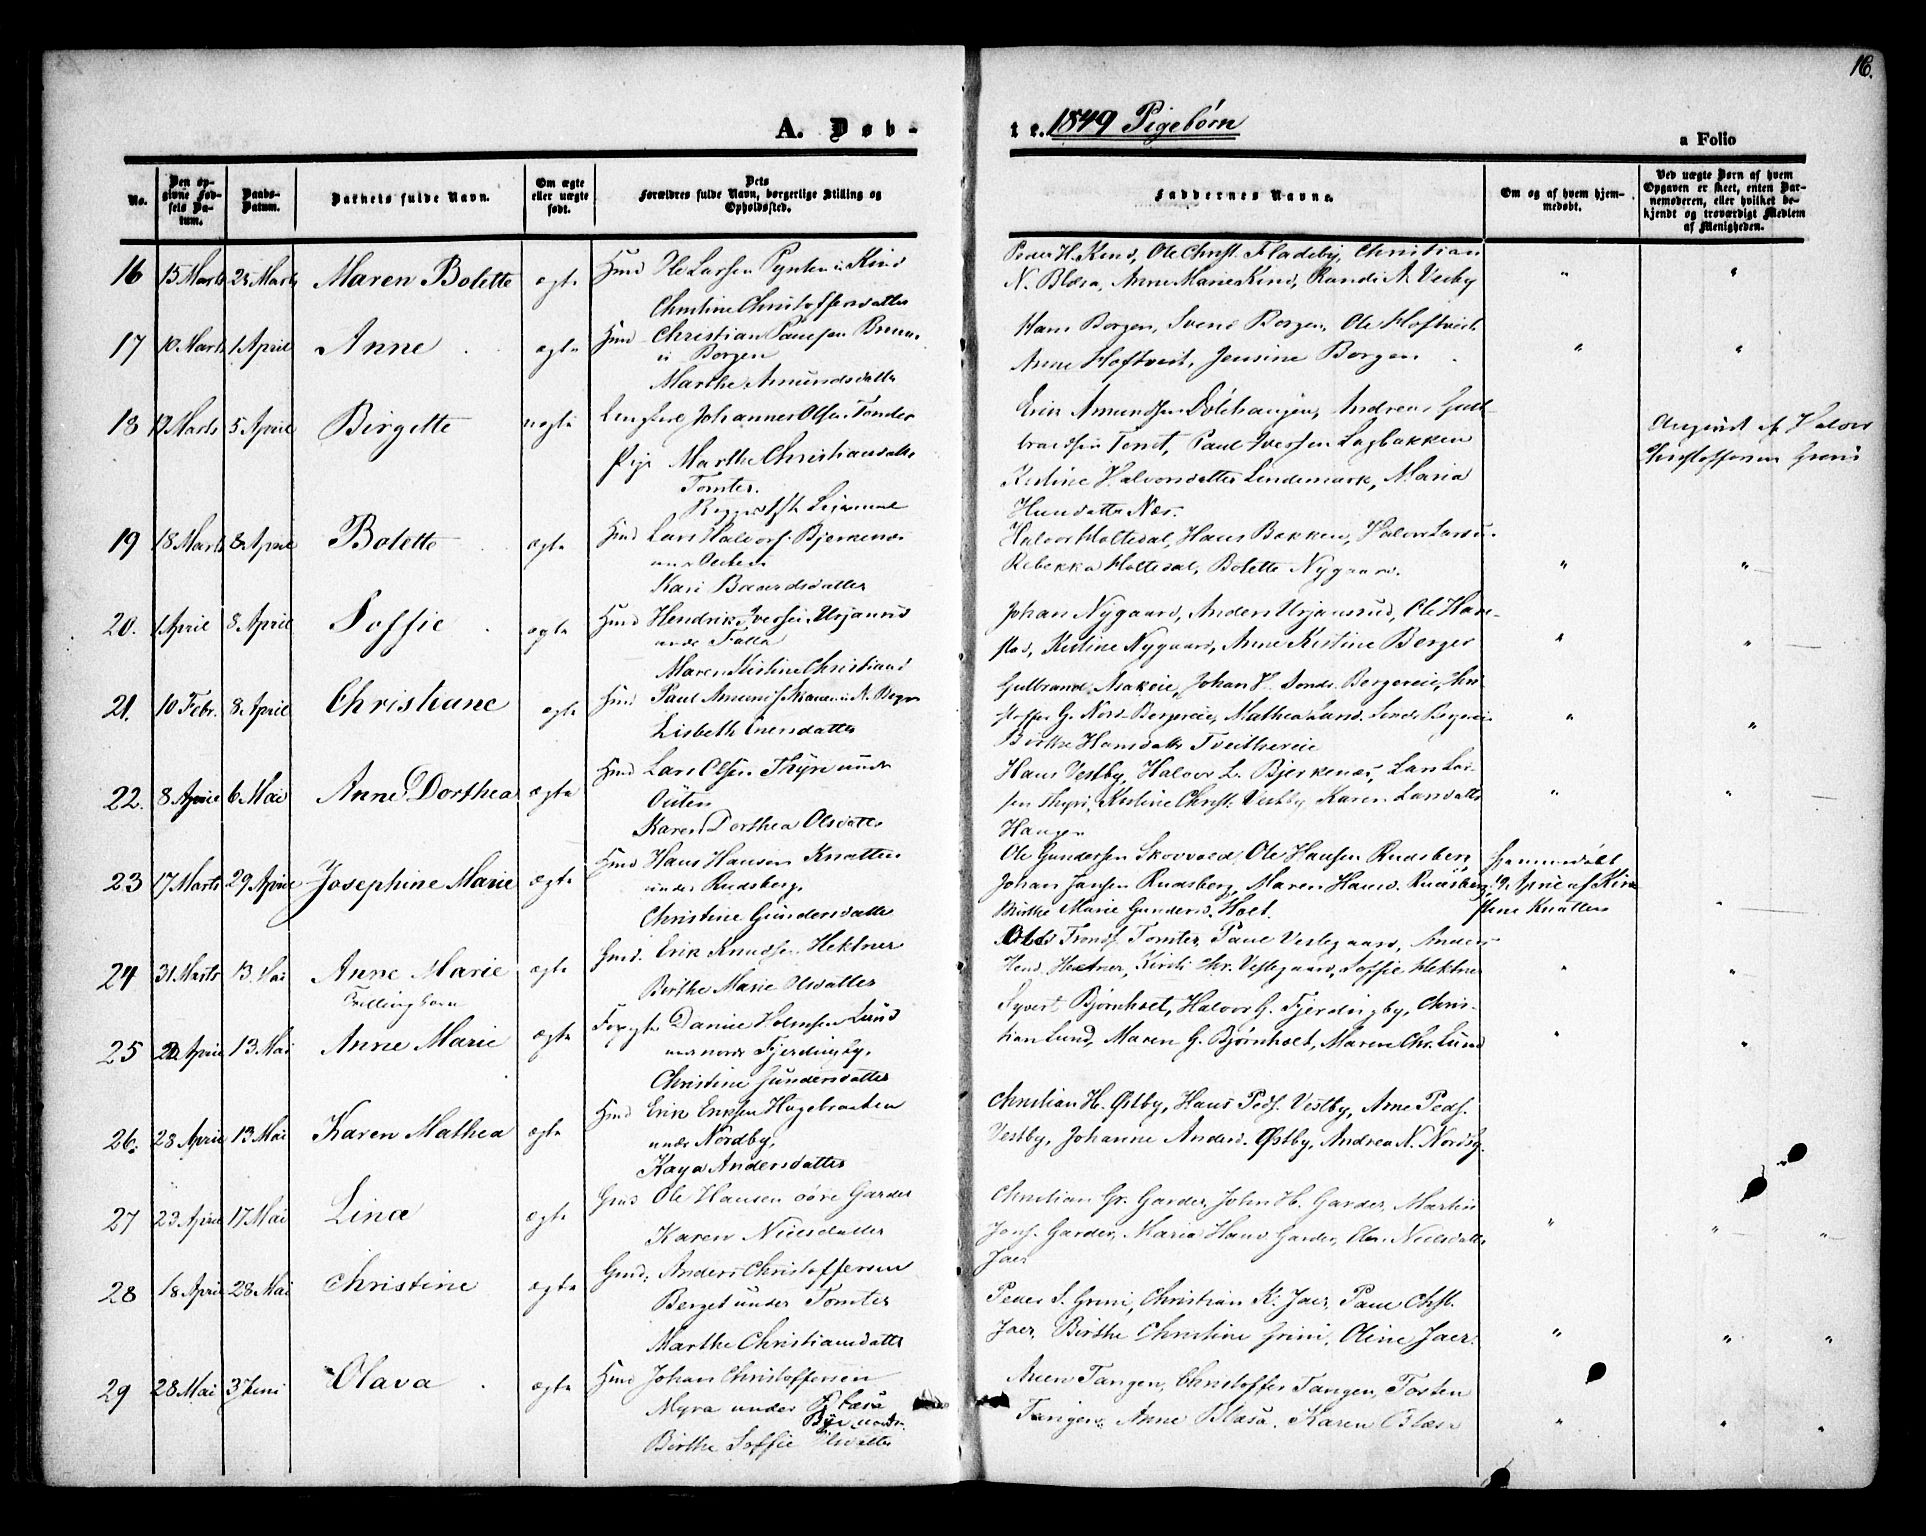 16.
A. Døbte. 1849 Pigebørn
a Folio
No.
Den opgivne Fødsels Datum.
Daabs-Datum.
Barnets fulde Navn.
Om ægte eller uægte født.
Dets Forældres fulde Navn, borgerlige Stilling og Opholdssted.
Faddernes Navne.
Om og af hvem hjemmedøbt.
Ved uægte Børn af hvem Opgaven er skeet, enten Barnemoderen, eller hvilket bekjendt og troværdigt Medlem af Menigheden.
16 15 Marts 25 Marts Maren Bolette ægte Hmd Ole Larsen Pynten i Kind
Christine Christoffersdatter
Peder H. Kind, Ole Christ. Fladeby, Christian
N. Blæsa, Anne Marie Kind, Randi A. Vesby
17 10 Marts 1 April Anne ægte Hmd Christian Paulsen
i Borgen
Marthe Amundsdatter
Hans Borgen, Svend Borgen, Ole Hoftvedt
Anne Hoftvedt, Jensine Borgen
18 12 Marts 5 April Birgette uægte Johannes Olsen Tomter
Pige Marthe Christiansdatter
Tomter.
Erik Amundsen Dølehaugen, Andreas Gul-
brandsen Tomt, Paul Iversen Lagbakken
Kistine Halvorsdatter Lindemark, Maria
Hansdatter Næs.
Angivet af Halvor
Christoffersen Grini
19 18 Marts 8 April Bolette ægte Hmd Lars Halvors. Bjerkenæs
Kari Baardsdatter
Halvor Holtedal, Hans Bakken, Halvor Larsen
Rebekka Holtedal, Bolette Nygaard.
20. 1 April 8 April Soffie ægte Hmd Hendrik Iversen Urjansrud
under Falla
Maren Kistine Christiansd
Johan Nygaard, Anders Urjansrud, Ole Hare-
stad, Kistine Nygaard, Anne Kistine Berger
21. 10 Febr. 8 April Christiane ægte Hmd Paul Amunds.
Lisbeth Enersdatter
Gulbrand Asakeie, Johan H. Søndre Bergereie, Chri
stoffer G. Nord Bergereie, Mathea Larsd. Søndre Bergereie
Birthe Hansdatter Tveithereie
22. 8 April 6 Mai Anne Dorthea ægte Hmd Lars Olsen Thyri under
Outen
Karen Dorthea Olsdatter
Hans Vestby, Halvor L. Bjerkenæs, Lars Lar-
sen Thyri, Kistine Christ. Vestby, Karen Larsdatter
Haugen
23 17 Marts 29 April Josephine Marie ægte Hmd Hans Hansen Knatten
under Rudsberg
Christine Gundersdatter
Ole Gundersen Skovvold, Ole Hansen Rudsberg
Johan Jansen Rudsberg, Maren Hansd. Rudsberg
Birthe Marie Gundersd. Holt.
Hjemmedøbt
19 April af Kir-
stine Knatten
24 31 Marts 13 Mai Anne Marie ægte Gmd. Erik Knudsen Hektner
Tvillingbarn
Birthe Marie Olsdatter
Tronds. Tomter, Paul Vestegaard, Anders
Hend. Hektner, Kirsti Chr. Vestegaard, Soffie Hektner
25 22 April 13 Mai Anne Marie ægte Forpgtr Daniel Holmsen Lund
nordre Fjerdingby,
Christine Gundersdatter
Syvert Bjørnholt, Halvor G. Fjerdingby, Chris-
tian Lund, Maren G. Bjørnholt, Maren Chr. Lund
26. 28 April 13 Mai Karen Mathea ægte Hmd Erik Eriksen Hagebraaten
under Nordby,
Kaya Andersdatter
Christian H. Østby, Hans Peds. Vestby, Arne Peds.
Vestby, Johanne Anders. Østby, Andrea N. Nordby.
27 23 April 17 Mai Lina ægte Gmd Ole Hansen søre Garder
Karen Nielsdatter
Christian Gr. Garder, John H. Garder, Martin
Jons. Garder, Maria Hansd Garder, Nielsdatter
Jaer
28 18 April 28 Mai Christine ægte Gmd, Anders Christoffersen
Berget under Tomter
Marthe Christiansdatter
Peder S. Grini, Christian K. Jaer, Paul Chst.
Jaer, Birthe Christine Grini, Oline Jaer.
29 28 Mai 3 Juni Olava ægte Hmd Johan Christoffersen
Myra under Blæsa
Birthe Soffie Olsdatter
Tangen, Christoffer Tangen, Tosten
Tangen, Anne Blæsa, Karen Blæsa